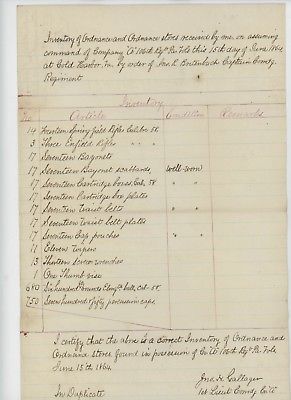 Inventory of Ordnance and Ordnance stores received by me on assuming
command of Company "A" 106th Regt Pa. Vols this 15th day of June 1864
at Cold Harbor, Va by order of Jno. R. Breitenbach Captain Comdg.
Regiment
Inventory
No. Article Condition Remarks
14 Fourteen Springfield Rifles Calibre 58.
3 Three Enfield Rifles " "
17 Seventeen Bayonets
17 Seventeen Bayonet scabbards well-worn
17 Seventeen Cartridge boxes Cal. 58 " "
17 Seventeen Cartridge box plates
17 Seventeen Waist belts " "
17 Seventeen Waist belt plates
17 Seventeen Cap pouches " "
11 Eleven Wipers
13 Thirteen Screw wrenches
1 One Thumb vise
680 Six hundred rounds Elong. ball, Cal. 58
750 Seven hundred & fifty percussion caps.
I certify that the above is a correct Inventory of Ordnance and
Ordnance Stores found in possession of Co "A" 106th Regt Pa Vols
June 15th 1864.
Jno. H. Gallager
In Duplicate 1st Lieut Comdg Co "A"